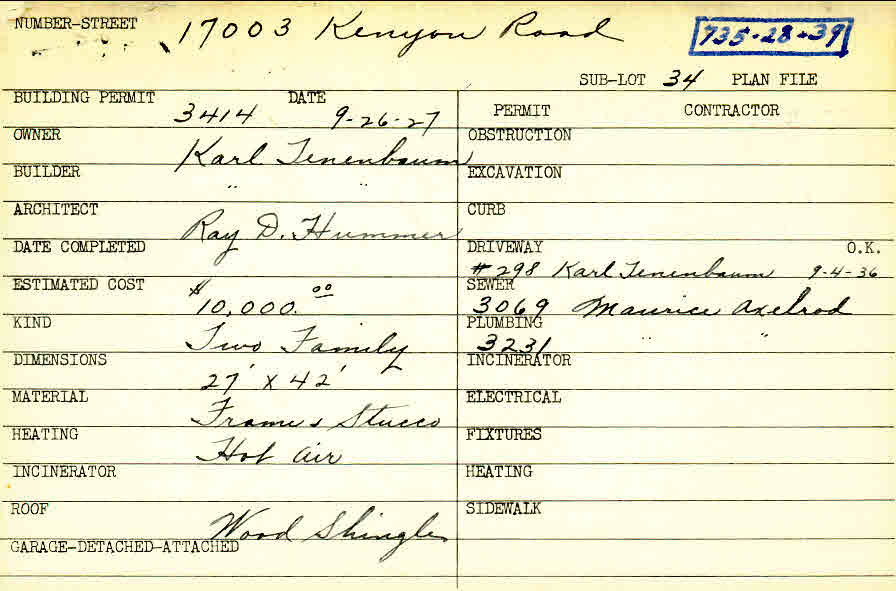 NUMBER-STREET 17003 Kenyon Road 735-28-39
SUB-LOT 34 PLAN FILE
BUILDING PERMIT 3414 DATE 9-26-27
OWNER Karl Tenenbaum
BUILDER " "
ARCHITECT Ray D. Hummer
DATE COMPLETED
ESTIMATED COST $10,000.00
KIND Two Family
DIMENSIONS 27' x 42'
MATERIAL Frame & Stucco
HEATING Hot Air
INCINERATOR
ROOF Wood Shingles
GARAGE-DETACHED-ATTACHED
PERMIT CONTRACTOR
OBSTRUCTION
EXCAVATION
CURB
DRIVEWAY O.K.
#298 Karl Tenenbaum 9-4-36
SEWER
3069 Maurice Axelrod
PLUMBING
3231 " "
INCINERATOR
ELECTRICAL
FIXTURES
HEATING
SIDEWALK